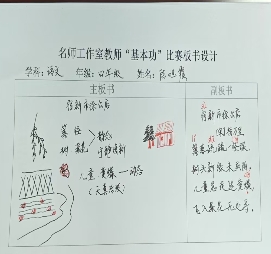 名师工作室教师“基本功”比赛板书设计
学科：语文 年级：四年级 姓名：陈
主板书
副板书
宿新市徐公店
篱 径
静态
树
儿童 黄蝶 — 动态
(天真活泼)
宿新市徐公店
篱落疏疏一径深，
树头新绿未成阴。
儿童急走追黄蝶，
飞入菜花无处寻。